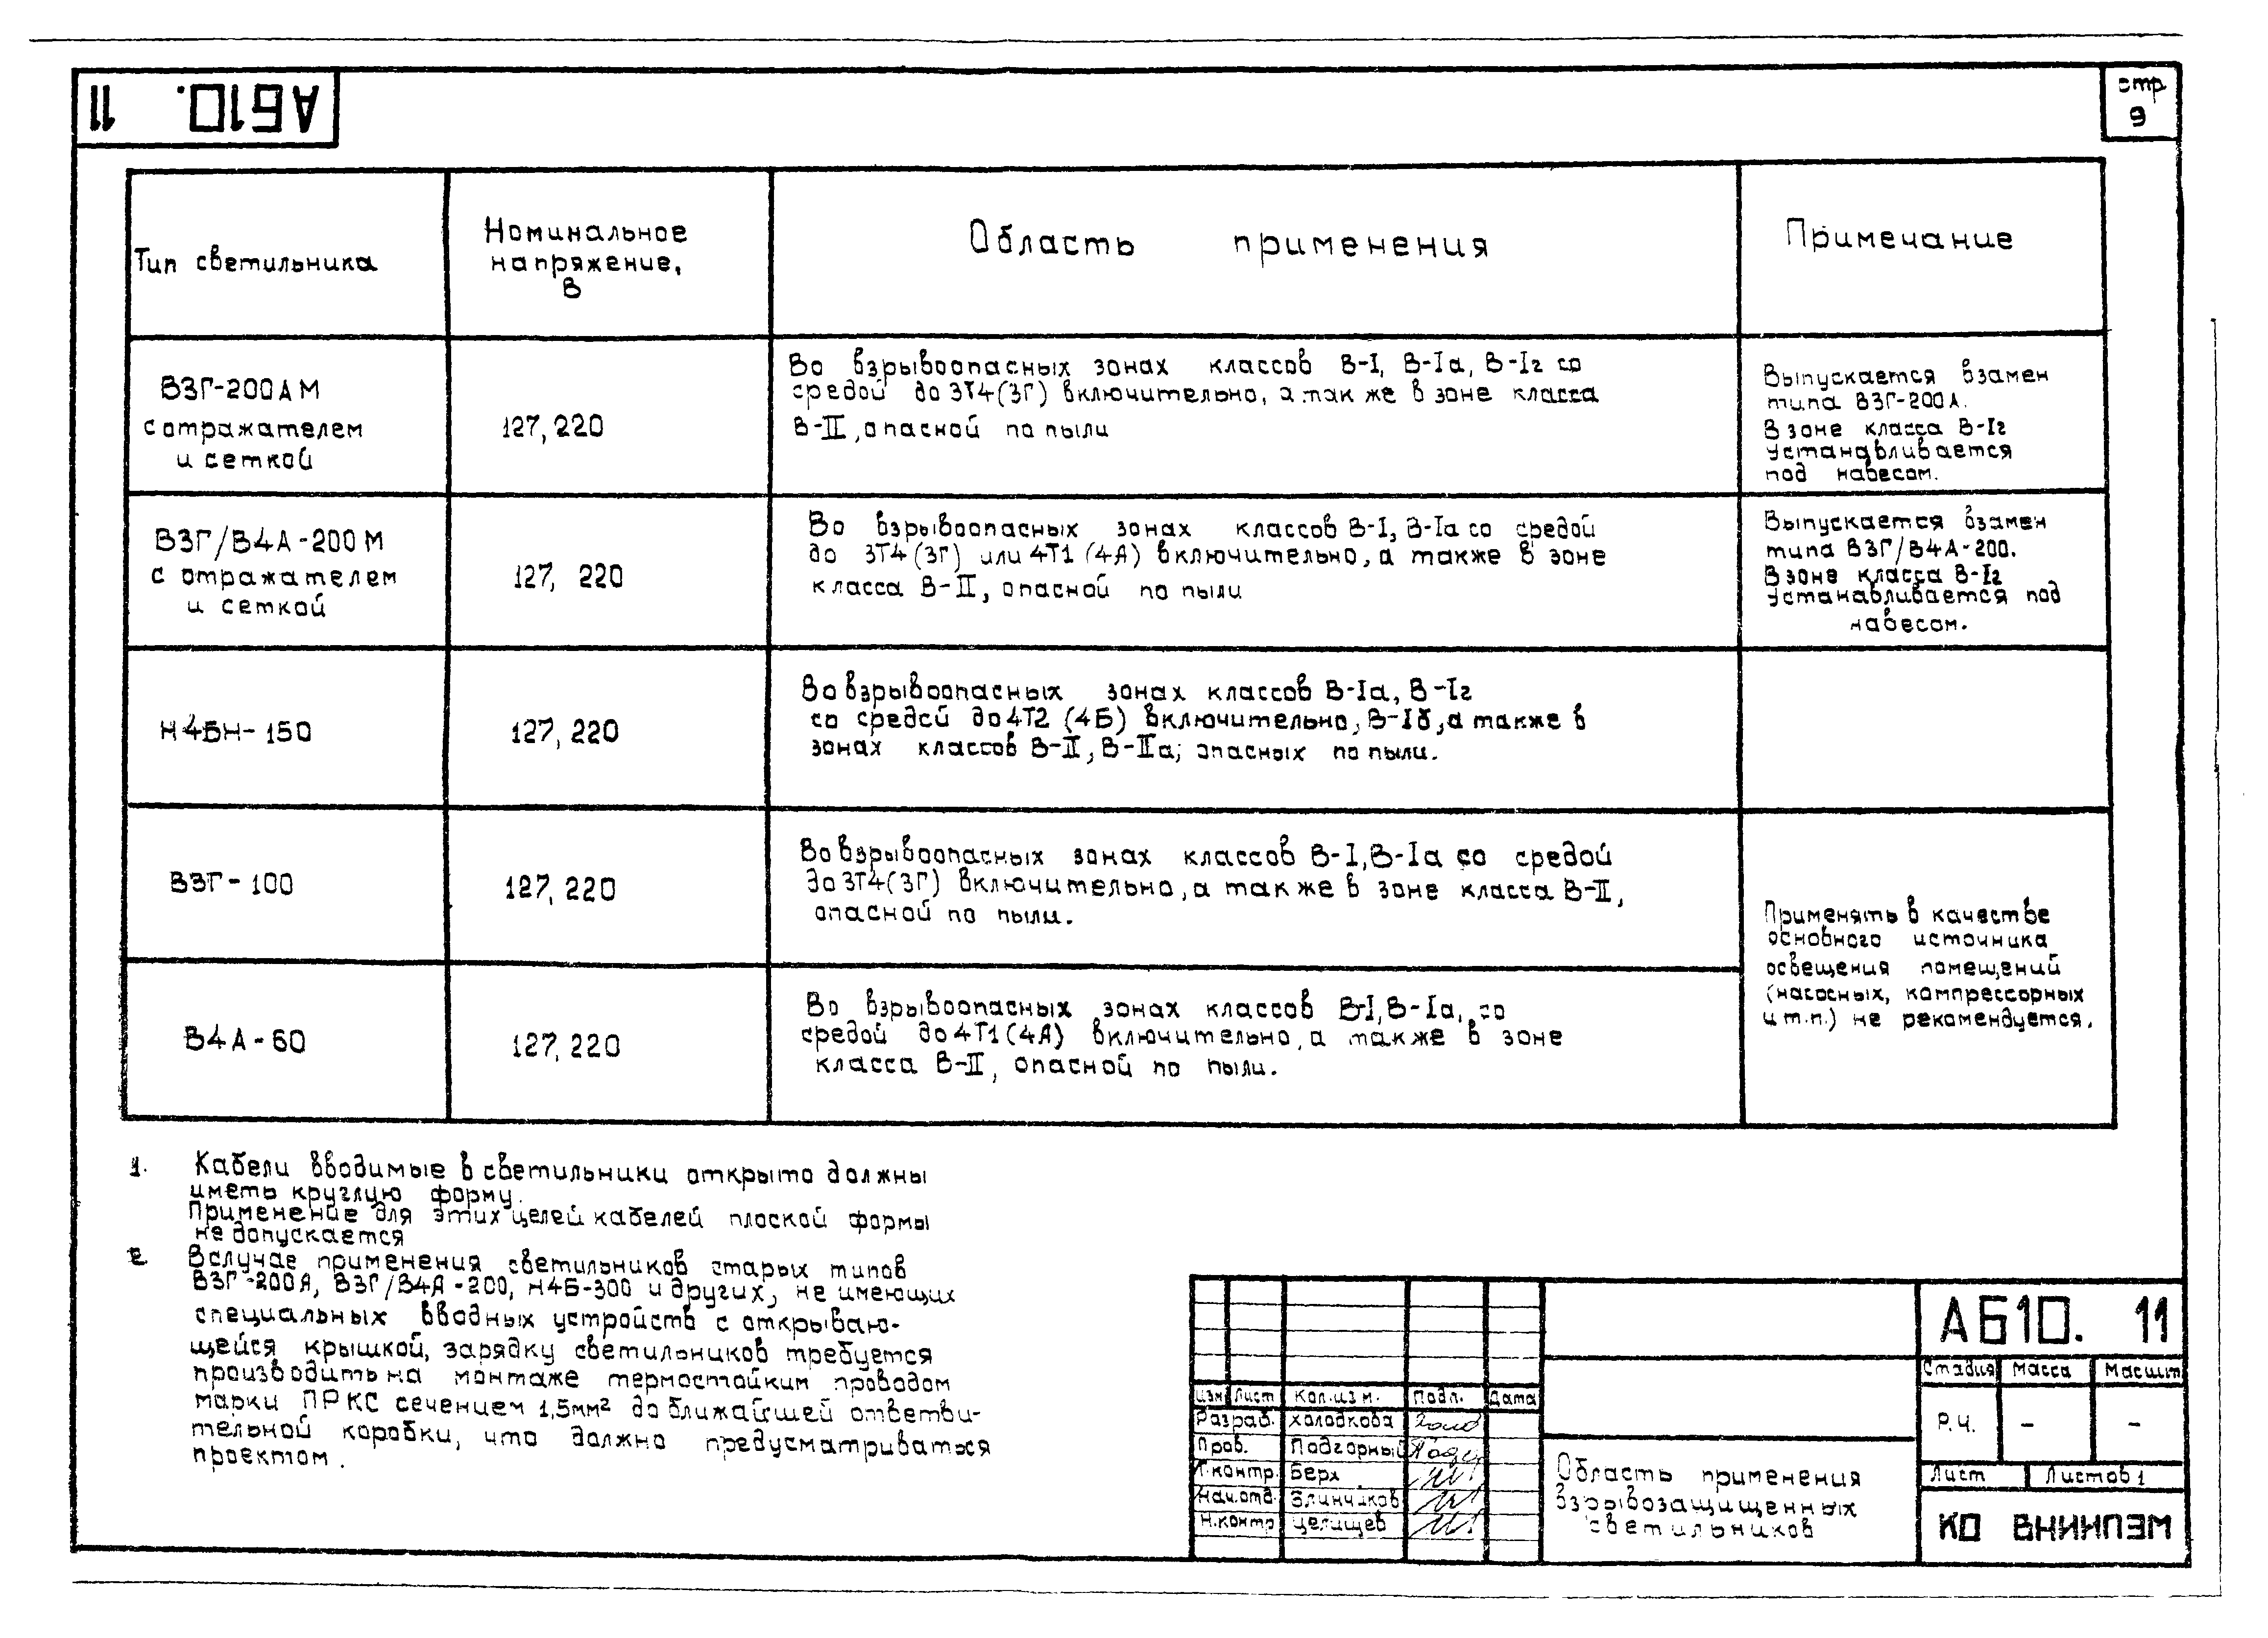 АБ10. 11
стр
9
Тип светильника
Номинальное
напряжение,
В
Область применения
Примечание
ВЗГ-200АМ
с отражателем
и сеткой
127, 220
Во взрывоопасных зонах классов В-I, В-Iа, В-Iг со
средой до 3Т4(3Г) включительно, а так же в зоне класса
В-II, опасной по пыли
Выпускается взамен
типа ВЗГ-200А.
В зоне класса В-Iг
устанавливается
под навесом.
ВЗГ/В4А-200М
с отражателем
и сеткой
127, 220
Во взрывоопасных зонах классов В-I, В-Iа со средой
до 3Т4(3Г) или 4Т1(4А) включительно, а также в зоне
класса В-II, опасной по пыли
Выпускается взамен
типа ВЗГ/В4А-200.
В зоне класса В-Iг
устанавливается под
навесом.
Н4БН-150
127, 220
Во взрывоопасных зонах классов В-Iа, В-Iг
со средой до 4Т2 (4Б) включительно, В-Iб, а также в
зонах классов В-II, В-IIа; опасных по пыли.
ВЗГ-100
127, 220
Во взрывоопасных зонах классов В-I, В-Iа со средой
до 3Т4(3Г) включительно, а также в зоне класса В-II,
опасной по пыли.
Применять в качестве
основного источника
освещения помещений
(насосных, компрессорных
и т.п.) не рекомендуется.
В4А-60
127, 220
Во взрывоопасных зонах классов В-I, В-Iа, со
средой до 4Т1(4А) включительно, а также в зоне
класса В-II, опасной по пыли.
1. Кабели вводимые в светильники открыто должны
иметь круглую форму.
Применение для этих целей кабелей плоской формы
не допускается
2 В случае применения светильников старых типов
ВЗГ-200А, ВЗГ/В4А-200, Н4Б-300 и других, не имеющих
специальных вводных устройств с открываю-
щейся крышкой, зарядку светильников требуется
производить на монтаже термостойким проводом
марки ПРКС сечением 1,5мм² до ближайшей ответви-
тельной коробки, что должно предусматриваться
проектом.
Изм Лист Кол.изм. Подп. Дата
Разраб. Холодкова
Пров. Подгорный
Т.контр. Берх
Нач.отд. Блинчиков
Н.контр Целищев
Область применения
взрывозащищенных
светильников
АБ10. 11
Стадия Масса Масшт
Р.Ч. - -
Лист Листов 1
КО ВНИИПЭМ